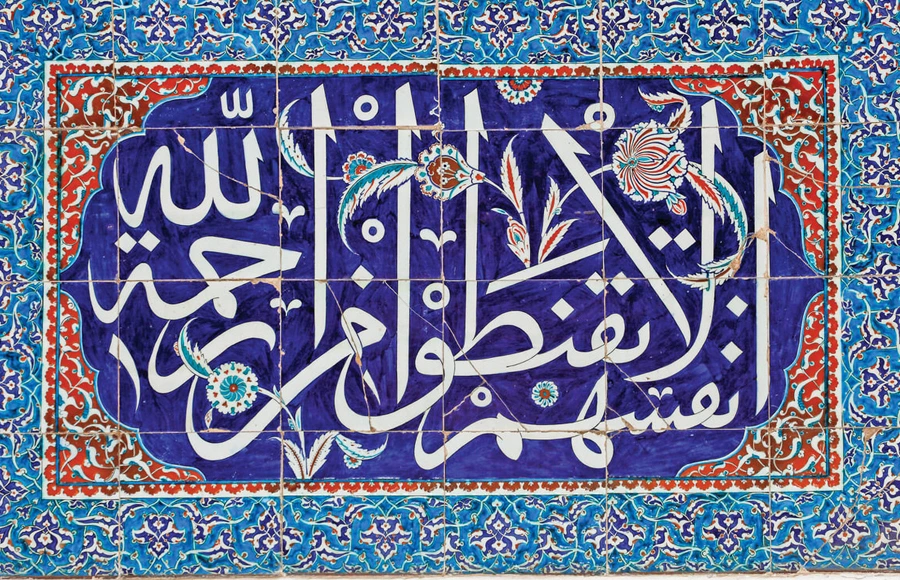 انفسهم لا تقنطوا من رحمة الله